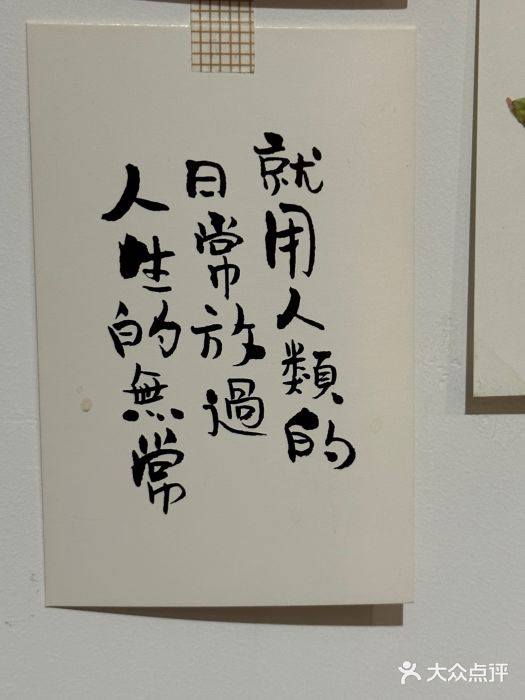 就用人類的
日常放過
人性的無常
大众点评